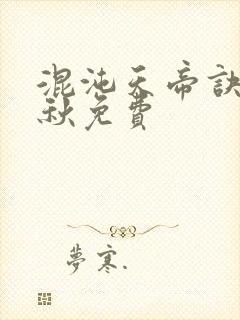 混沌天帝訣
秋免費
夢寒.